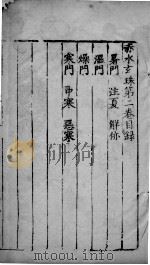 赤水玄珠第二卷目録
暑門 注夏 解㑊
濕門
燥門
寒門 中寒 惡寒
mtoou.info
mtoou.info